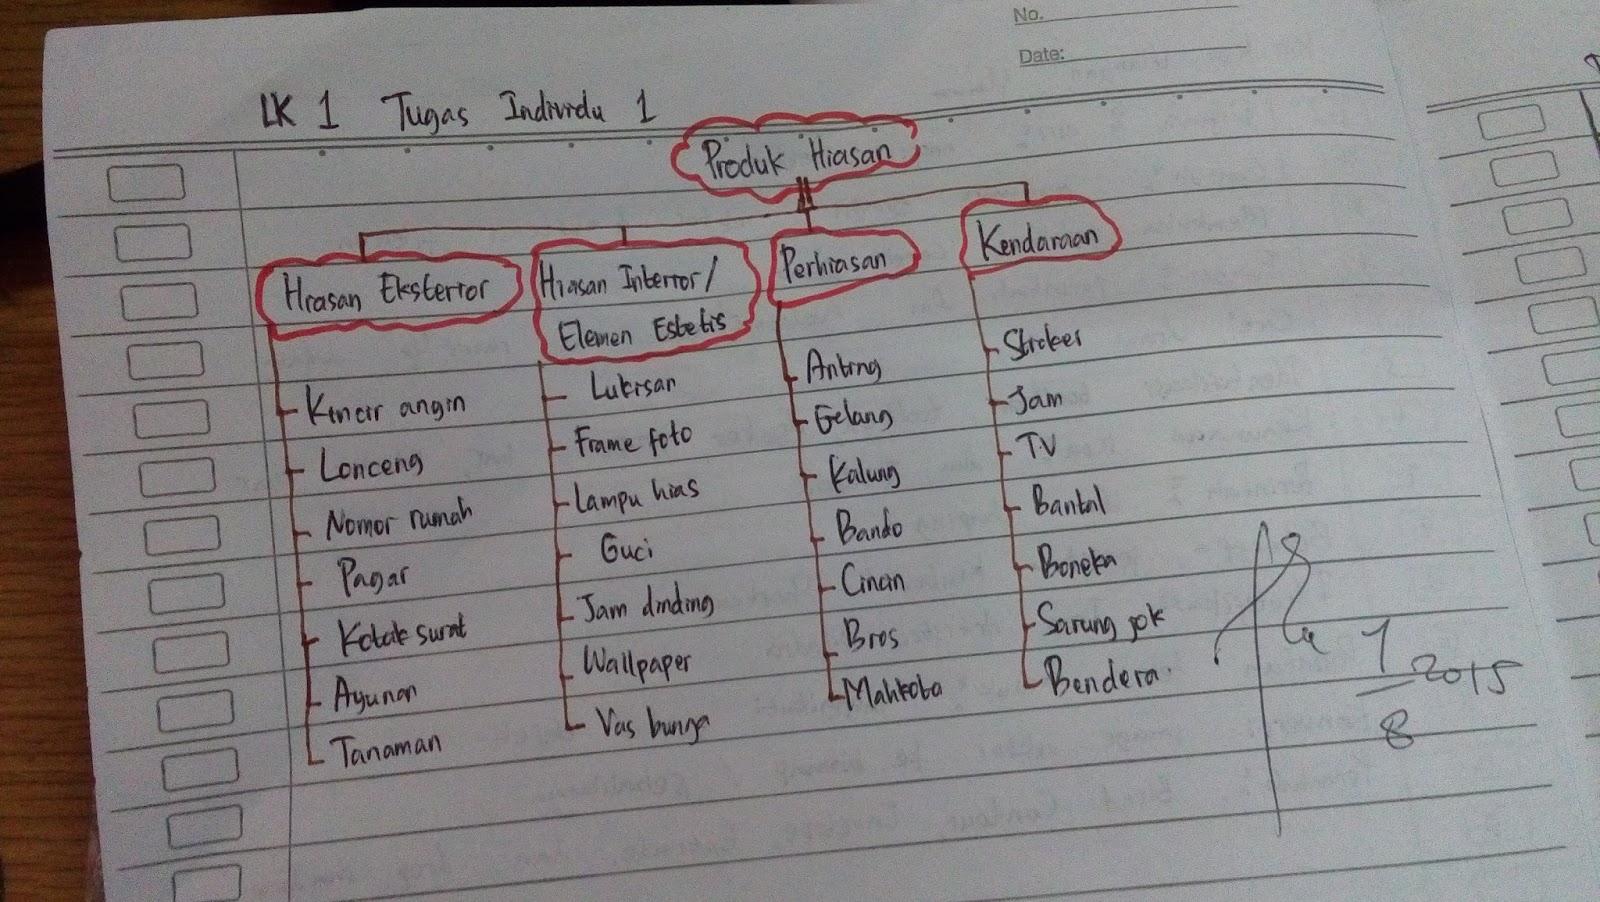 No.
Date:
LK 1 Tugas Individu 1
Produk Hiasan
Hiasan Eksterior
Kincir angin
Lonceng
Nomor rumah
Pagar
Kotak surat
Ayunan
Tanaman
Hiasan Interior/
Elemen Estetis
Lukisan
Frame foto
Lampu hias
Guci
Jam dinding
Wallpaper
Vas bunga
Perhiasan
Anting
Gelang
Kalung
Bando
Cincin
Bros
Mahkota
Kendaraan
Stiker
Jam
TV
Bantal
Boneka
Sarung jok
Bendera.
1
8
2015